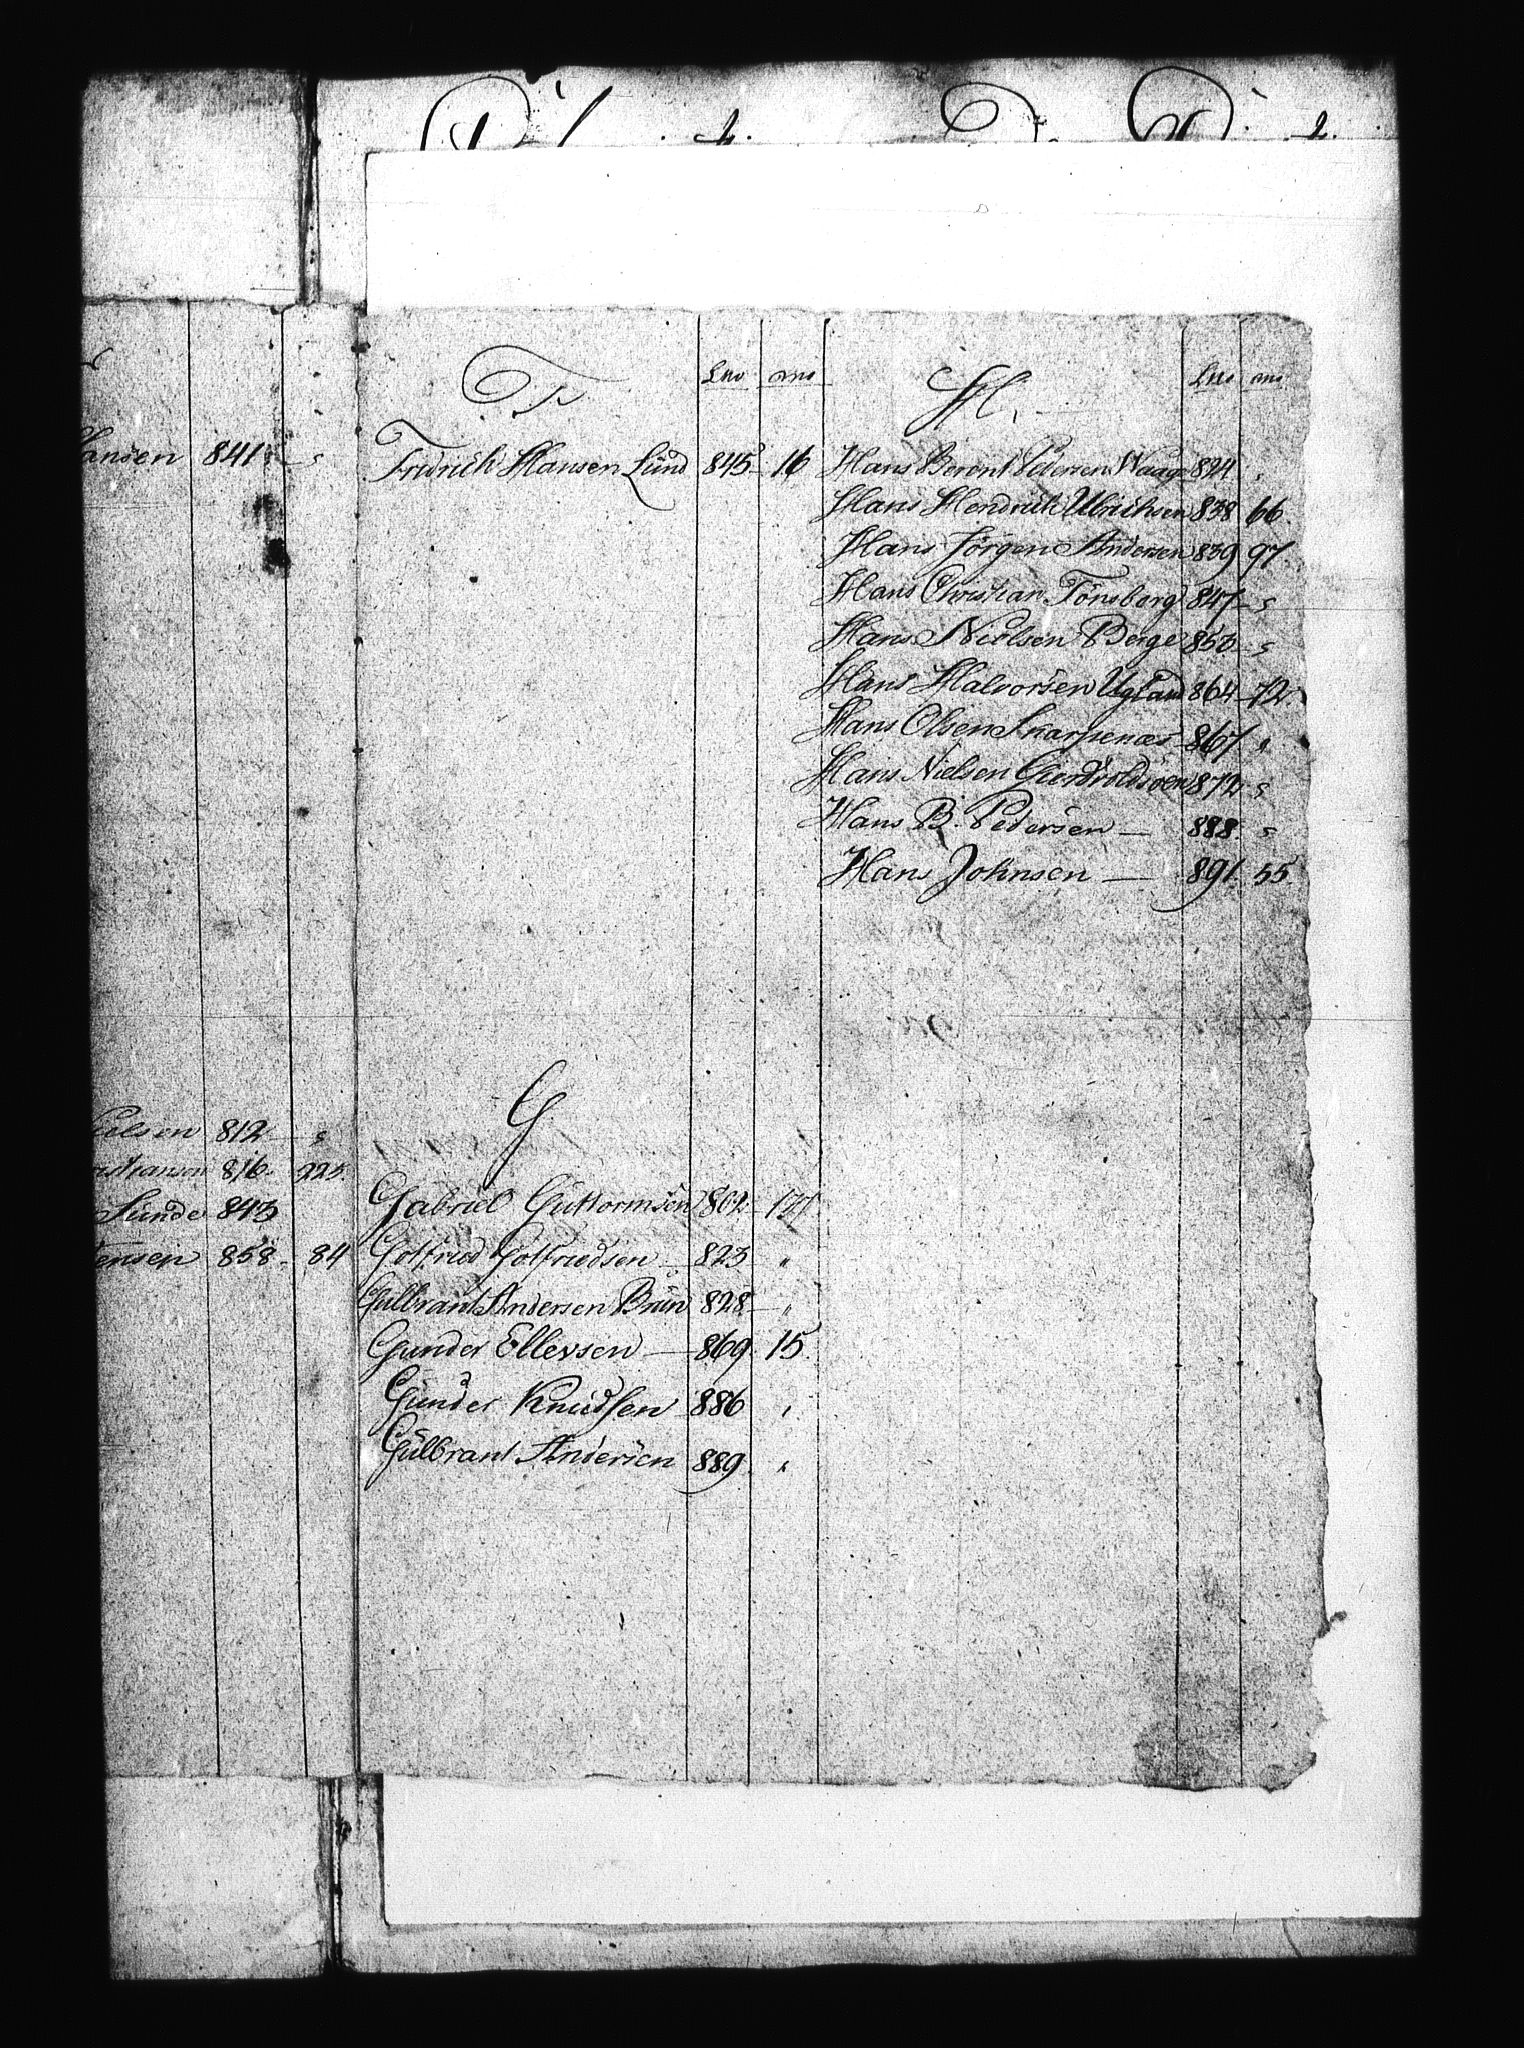 Hansen 841 "
elsen 812 "
istiansen 816. 225.
Sunde 843
Jensen 858. 84
F. Lno ano
Fridrich Hansen Lund 845 16
G
Gabriel Guttormsen 802 137
Gotfried Gotfriedsen 823 "
Gulbrant Andersen Brun 828 "
Gunder Ellevsen 869 15.
Gunder Knudsen 886 "
Gulbrant Andersen 889 "
H. Lno ano
Hans Berent Pedersen Waage 824 "
Hans Hendrich Ulrichsen 838 66.
Hans Jørgen Andersen 839 97.
Hans Christian Tønsberg 847 "
Hans Nielsen Berge 853 "
Hans Halvorsen Ugland 864 72.
Hans Olsen Snarpenæs 867 "
Hans Nielsen 872 "
Hans B. Pedersen 888. "
Hans Johnsen 891. 55.